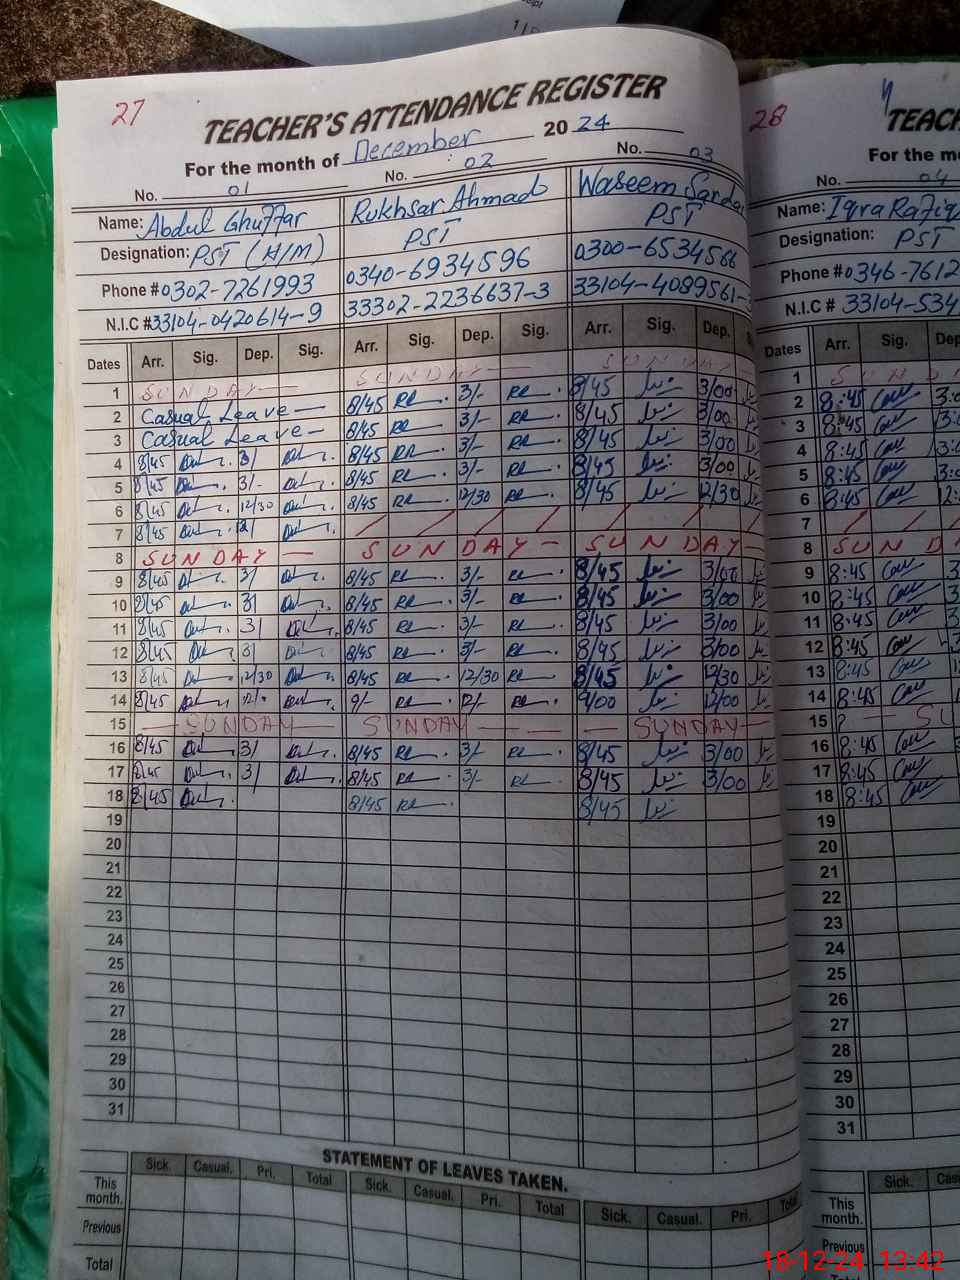 27
TEACHER'S ATTENDANCE REGISTER
For the month of December 2024
No. 01 No. 02 No. 03
Name: Abdul Ghuffar Rukhsar Ahmad Waseem Sardar
Designation: PST (H/M) PST PST
Phone # 0302-7261993 0340-6934596 0300-6534566
N.I.C # 33104-0420614-9 33302-2236637-3 33104-4089561-
Dates Arr. Sig. Dep. Sig. Arr. Sig. Dep. Sig. Arr. Sig. Dep.
1 SUNDAY SUNDAY SUNDAY
2 Casual Leave 8/45 3/- 8/45 3/00
3 Casual Leave 8/45 3/- 8/45 3/00
4 8/45 3/ 8/45 3/- 8/45 3/00
5 8/45 3/- 8/45 3/- 8/45 3/00
6 8/45 12/30 8/45 12/30 8/45 12/30
7 8/45
8 SUNDAY SUNDAY SUNDAY
9 8/45 3/ 8/45 3/- 8/45 3/00
10 8/45 3/ 8/45 3/- 8/45 3/00
11 8/45 3/ 8/45 3/- 8/45 3/00
12 8/45 3/ 8/45 3/- 8/45 3/00
13 8/45 12/30 8/45 12/30 8/45 12/30
14 8/45 9/- 12/- 9/00 12/00
15 SUNDAY SUNDAY SUNDAY
16 8/45 3/ 8/45 3/- 8/45 3/00
17 8/45 3/ 8/45 3/- 8/45 3/00
18 8/45 8/45 8/45
19
20
21
22
23
24
25
26
27
28
29
30
31
STATEMENT OF LEAVES TAKEN.
Sick. Casual. Pri. Total Sick. Casual. Pri. Total Sick. Casual. Pri. Total
This month.
Previous
Total
28
For the
No. 04
Name: Iqra Rafiq
Designation: PST
Phone # 0346-7612
N.I.C # 33104-534
Dates Arr. Sig.
1
2 8:45
3 8:45
4 8:45
5 8:45
6 8:45
7
8 SUN
9 8:45
10 8:45
11 8:45
12 8:45
13 8:45
14 8:45
15
16 8:45
17 8:45
18 8:45
19
20
21
22
23
24
25
26
27
28
29
30
31
Sick.
This month.
Previous
18-12-24 13:42